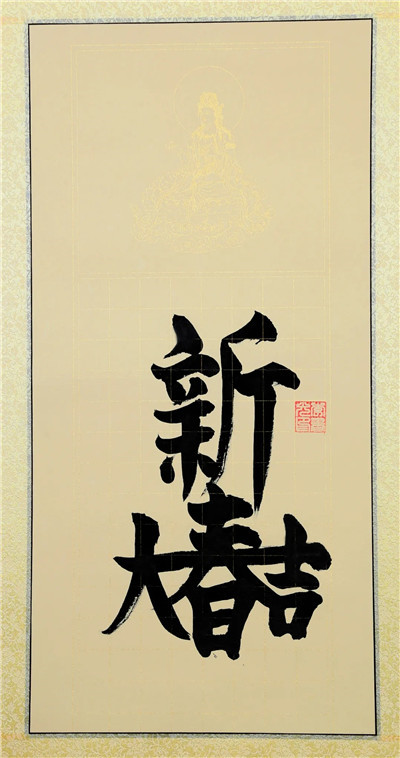 新春
大吉